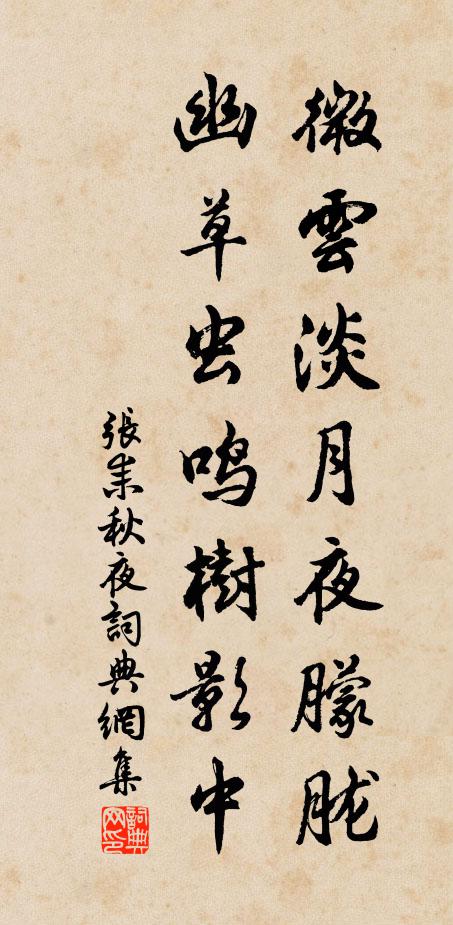 微雲淡月夜朦胧
幽草虫鸣樹影中
張耒秋夜詞典網集
詞典网印